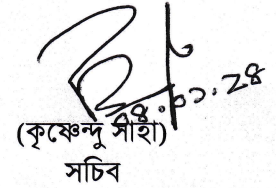 ০৪.০১.২৪
(কৃষ্ণেন্দু সাহা)
সচিব